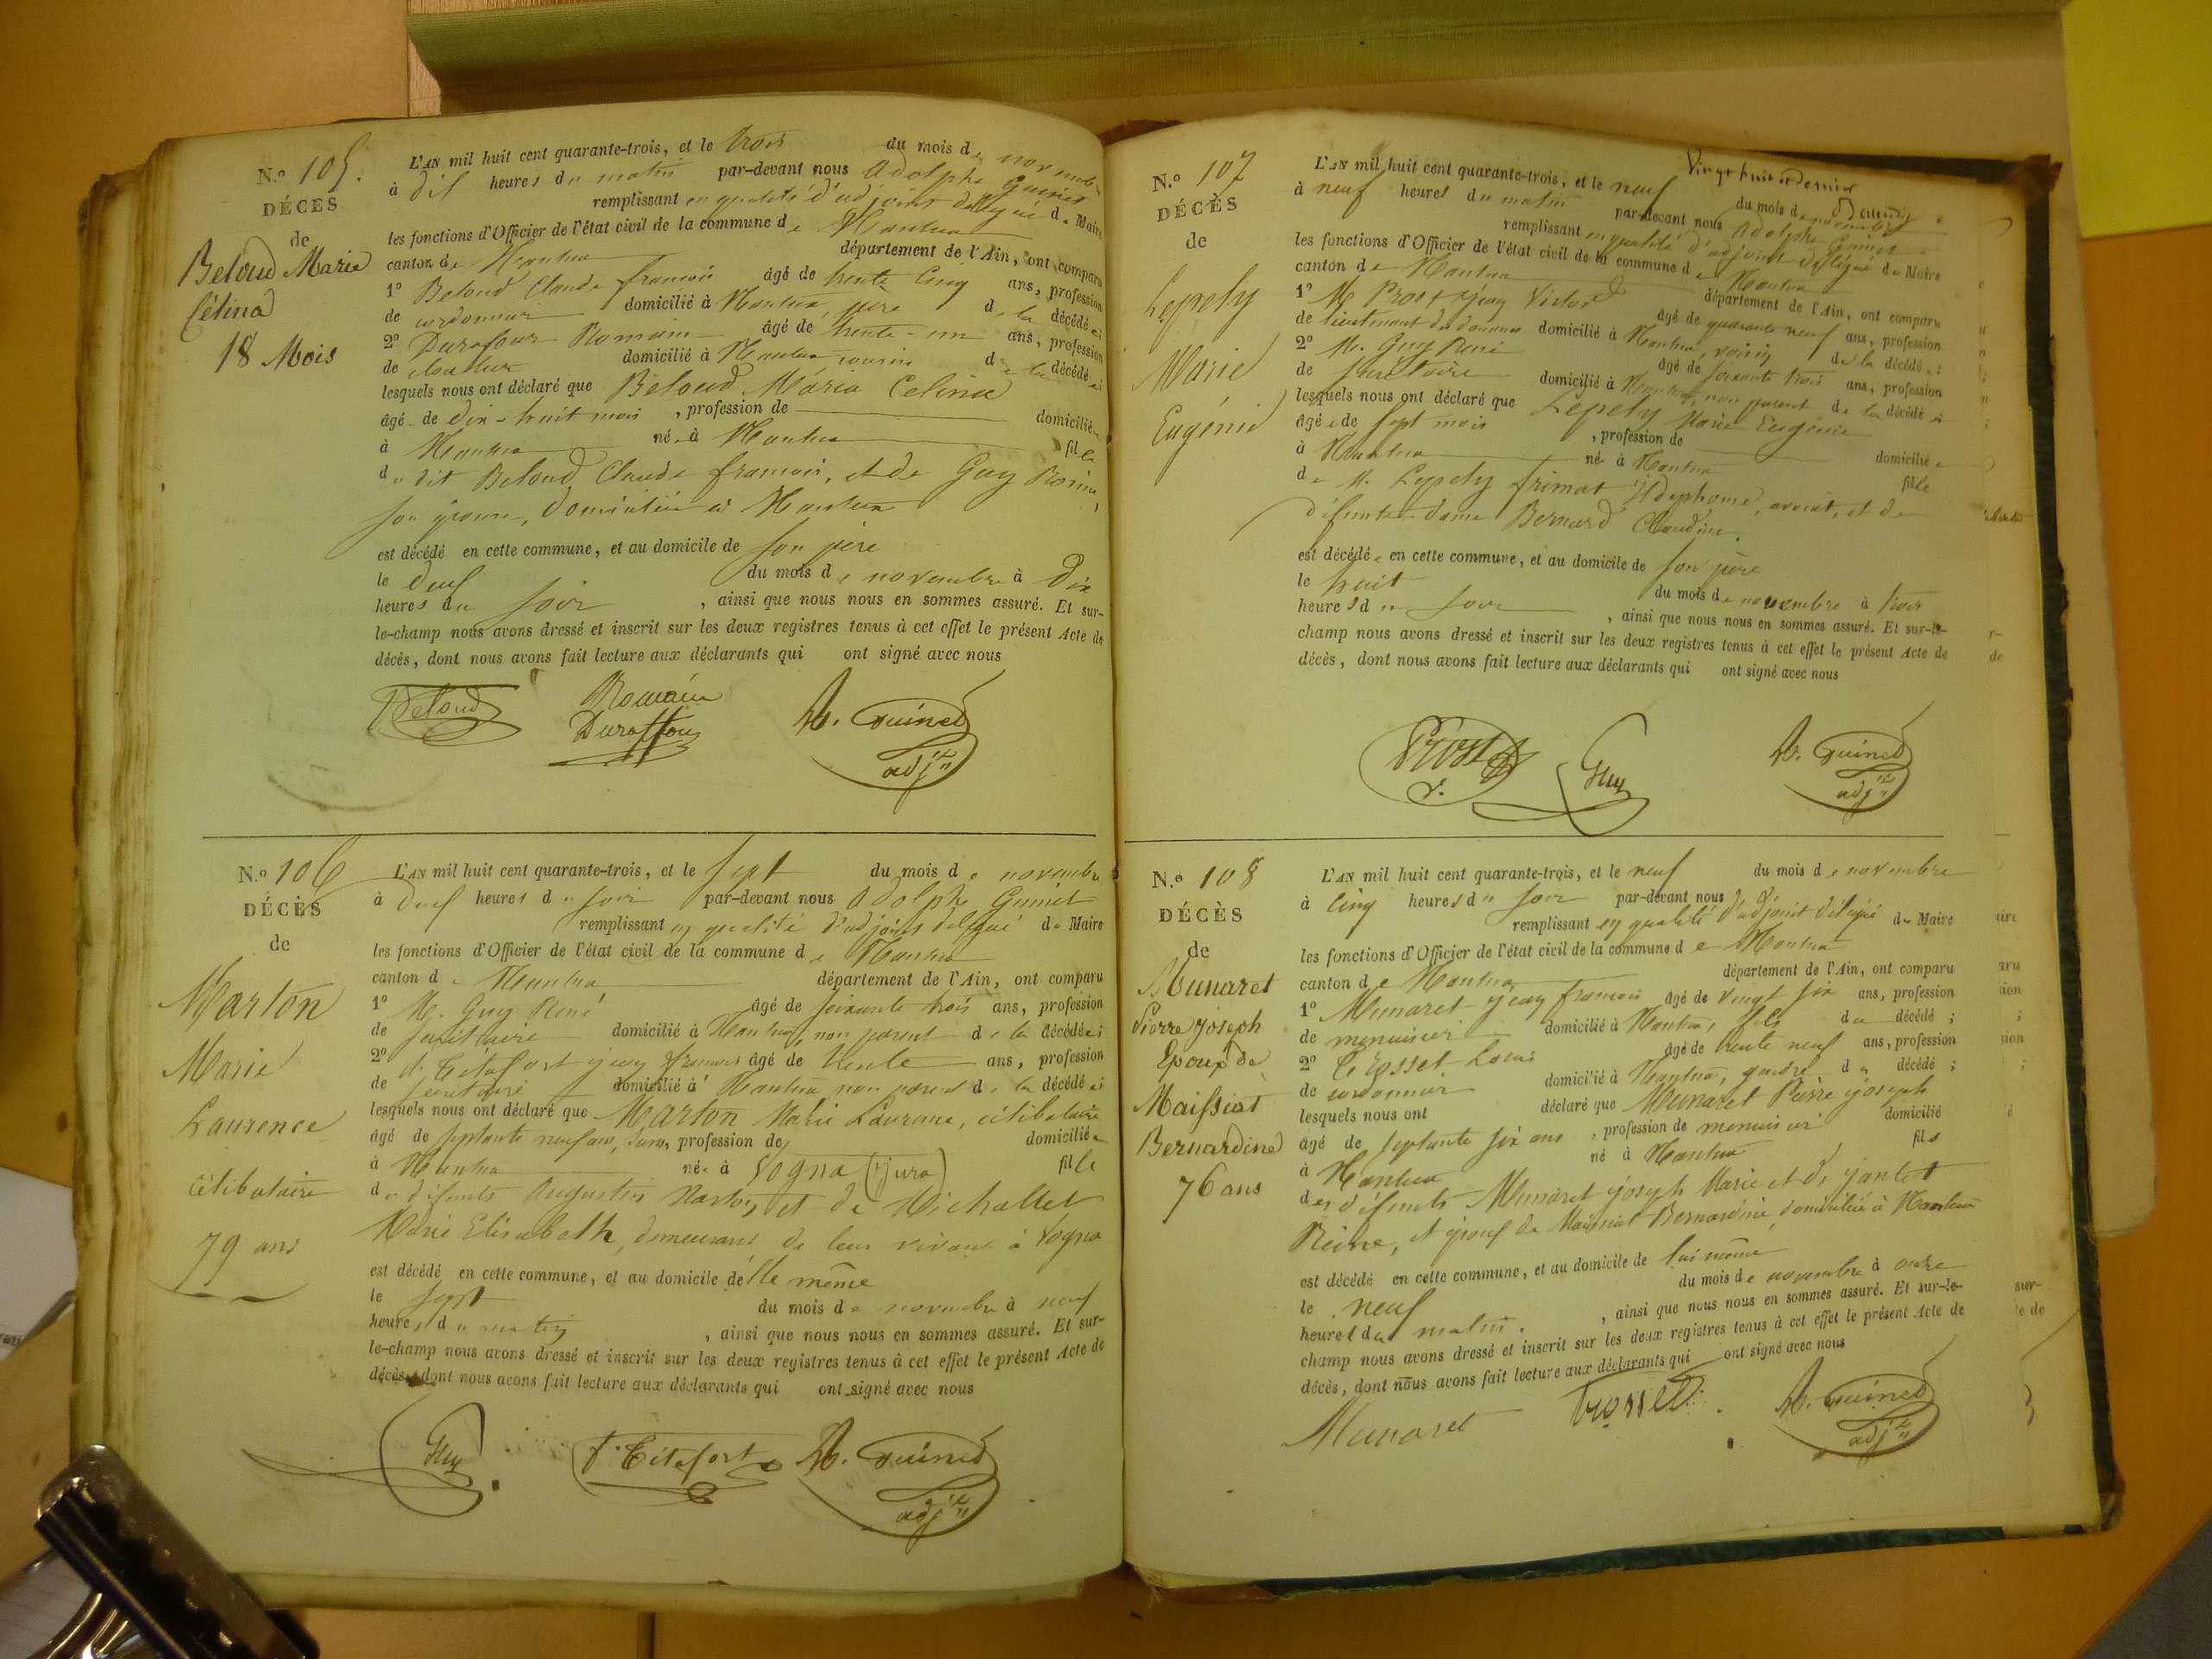 N.° 105.
DÉCÈS
de
Beloud Marie
Célina
18 Mois
L'AN mil huit cent quarante-trois, et le trois du mois de novembre
à dix heures du matin par-devant nous Adolphe Guinet
remplissant en qualité d'adjoint délégué du Maire
les fonctions d'Officier de l'état civil de la commune de Nantua
canton de Nantua département de l'Ain, ont comparu
1° Beloud Claude françois âgé de trente cinq ans, profession
de cordonnier domicilié à Nantua, père de la décédée ;
2° Durafour Romain âgé de trente-un ans, profession
de domicilié à Nantua cousin de la décédée ;
lesquels nous ont déclaré que Beloud Maria Celina
âgé de dix-huit mois, profession de domiciliée
à Nantua née à Nantua fille
du dit Beloud Claude françois, et de Guy
son épouse, domiciliés à Nantua
est décédé en cette commune, et au domicile de son père
le deux du mois de novembre à dix
heures du soir, ainsi que nous nous en sommes assuré. Et sur-
le-champ nous avons dressé et inscrit sur les deux registres tenus à cet effet le présent Acte de
décès, dont nous avons fait lecture aux déclarants qui ont signé avec nous
Beloud Romain Duraffour A. Guinet adj.t
N.° 106
DÉCÈS
de
Marton
Marie
Laurence
célibataire
79 ans
L'AN mil huit cent quarante-trois, et le sept du mois de novembre
à deux heures du soir par-devant nous Adolphe Guinet
remplissant en qualité d'adjoint délégué du Maire
les fonctions d'Officier de l'état civil de la commune de Nantua
canton de Nantua département de l'Ain, ont comparu
1° M. Guy René âgé de soixante trois ans, profession
de secrétaire domicilié à Nantua, non parent de la décédée ;
2° f. Tétafort jean françois âgé de trente ans, profession
de secrétaire domicilié à Nantua non parent de la décédée ;
lesquels nous ont déclaré que Marton Marie Laurence, célibataire
âgé de septante neuf ans, sans profession de domiciliée
à Nantua née à Vogna (jura) fille
de défunts Augustin Marton, et de Michallet
Marie Elisabeth, demeurant de leur vivant à Vogna
est décédé en cette commune, et au domicile d'elle même
le sept du mois de novembre à neuf
heures du matin, ainsi que nous nous en sommes assuré. Et sur-
le-champ nous avons dressé et inscrit sur les deux registres tenus à cet effet le présent Acte de
décès, dont nous avons fait lecture aux déclarants qui ont signé avec nous
Guy f. Tétafort A. Guinet adj.t
Vingt huit et dernier
N.° 107
DÉCÈS
de
Lepely
Marie
Eugénie
L'AN mil huit cent quarante-trois, et le neuf du mois de novembre
à neuf heures du matin par-devant nous Adolphe Guinet
remplissant en qualité d'adjoint délégué du Maire
les fonctions d'Officier de l'état civil de la commune de Nantua
canton de Nantua département de l'Ain, ont comparu
1° M. Prost jean Victor âgé de quarante neuf ans, profession
de lieutenant des douanes domicilié à Nantua, voisin de la décédée ;
2° M. Guy René âgé de soixante trois ans, profession
de secrétaire domicilié à Nantua, non parent de la décédée ;
lesquels nous ont déclaré que Lepely Marie Eugénie
âgée de sept mois, profession de domiciliée
à Nantua née à Nantua fille
de M. Lepely frimat Ildephonse, avocat, et de
défunte dame Bernard Claudine.
est décédée en cette commune, et au domicile de son père
le huit du mois de novembre à trois
heures du soir, ainsi que nous nous en sommes assuré. Et sur-le-
champ nous avons dressé et inscrit sur les deux registres tenus à cet effet le présent Acte de
décès, dont nous avons fait lecture aux déclarants qui ont signé avec nous
Prost Guy A. Guinet adj.t
N.° 108
DÉCÈS
de
Munaret
Pierre joseph
Epoux de
Maissiat
Bernardine
76 ans
L'AN mil huit cent quarante-trois, et le neuf du mois de novembre
à cinq heures du soir par-devant nous
remplissant en qualité d'adjoint délégué du Maire
les fonctions d'Officier de l'état civil de la commune de Nantua
canton de Nantua département de l'Ain, ont comparu
1° Munaret jean françois âgé de vingt six ans, profession
de menuisier domicilié à Nantua, fils du décédé ;
2° Trosset Louis âgé de trente neuf ans, profession
de cordonnier domicilié à Nantua, gendre du décédé ;
lesquels nous ont déclaré que Munaret Pierre joseph
âgé de septante six ans, profession de menuisier domicilié
à Nantua né à Nantua fils
des défunts Munaret joseph Marie et de jantet
Reine, et époux de Maissiat Bernardine, domiciliée à Nantua
est décédé en cette commune, et au domicile de lui même
le neuf du mois de novembre à onze
heures du matin, ainsi que nous nous en sommes assuré. Et sur-le-
champ nous avons dressé et inscrit sur les deux registres tenus à cet effet le présent Acte de
décès, dont nous avons fait lecture aux déclarants qui ont signé avec nous
Munaret Trosset A. Guinet adj.t